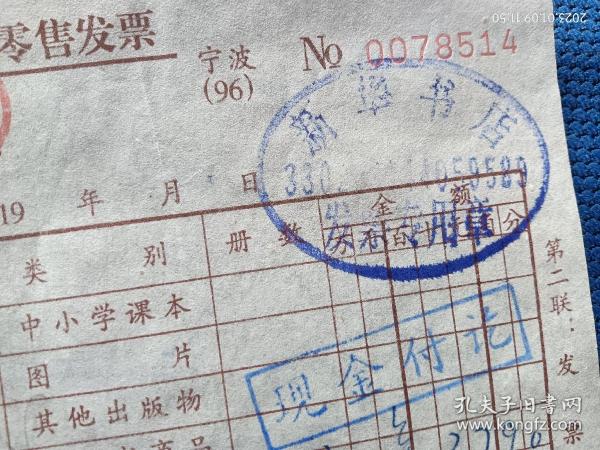 2023.01.09 11:50
零售发票
宁波
(96)
No 0078514
新华书店
发票专用章
19 年 月 日
类别 册数 金额
百 十 分
中小学课本
图片
其他出版物
现金付讫
第二联：发票
孔夫子旧书网
kongfz.com